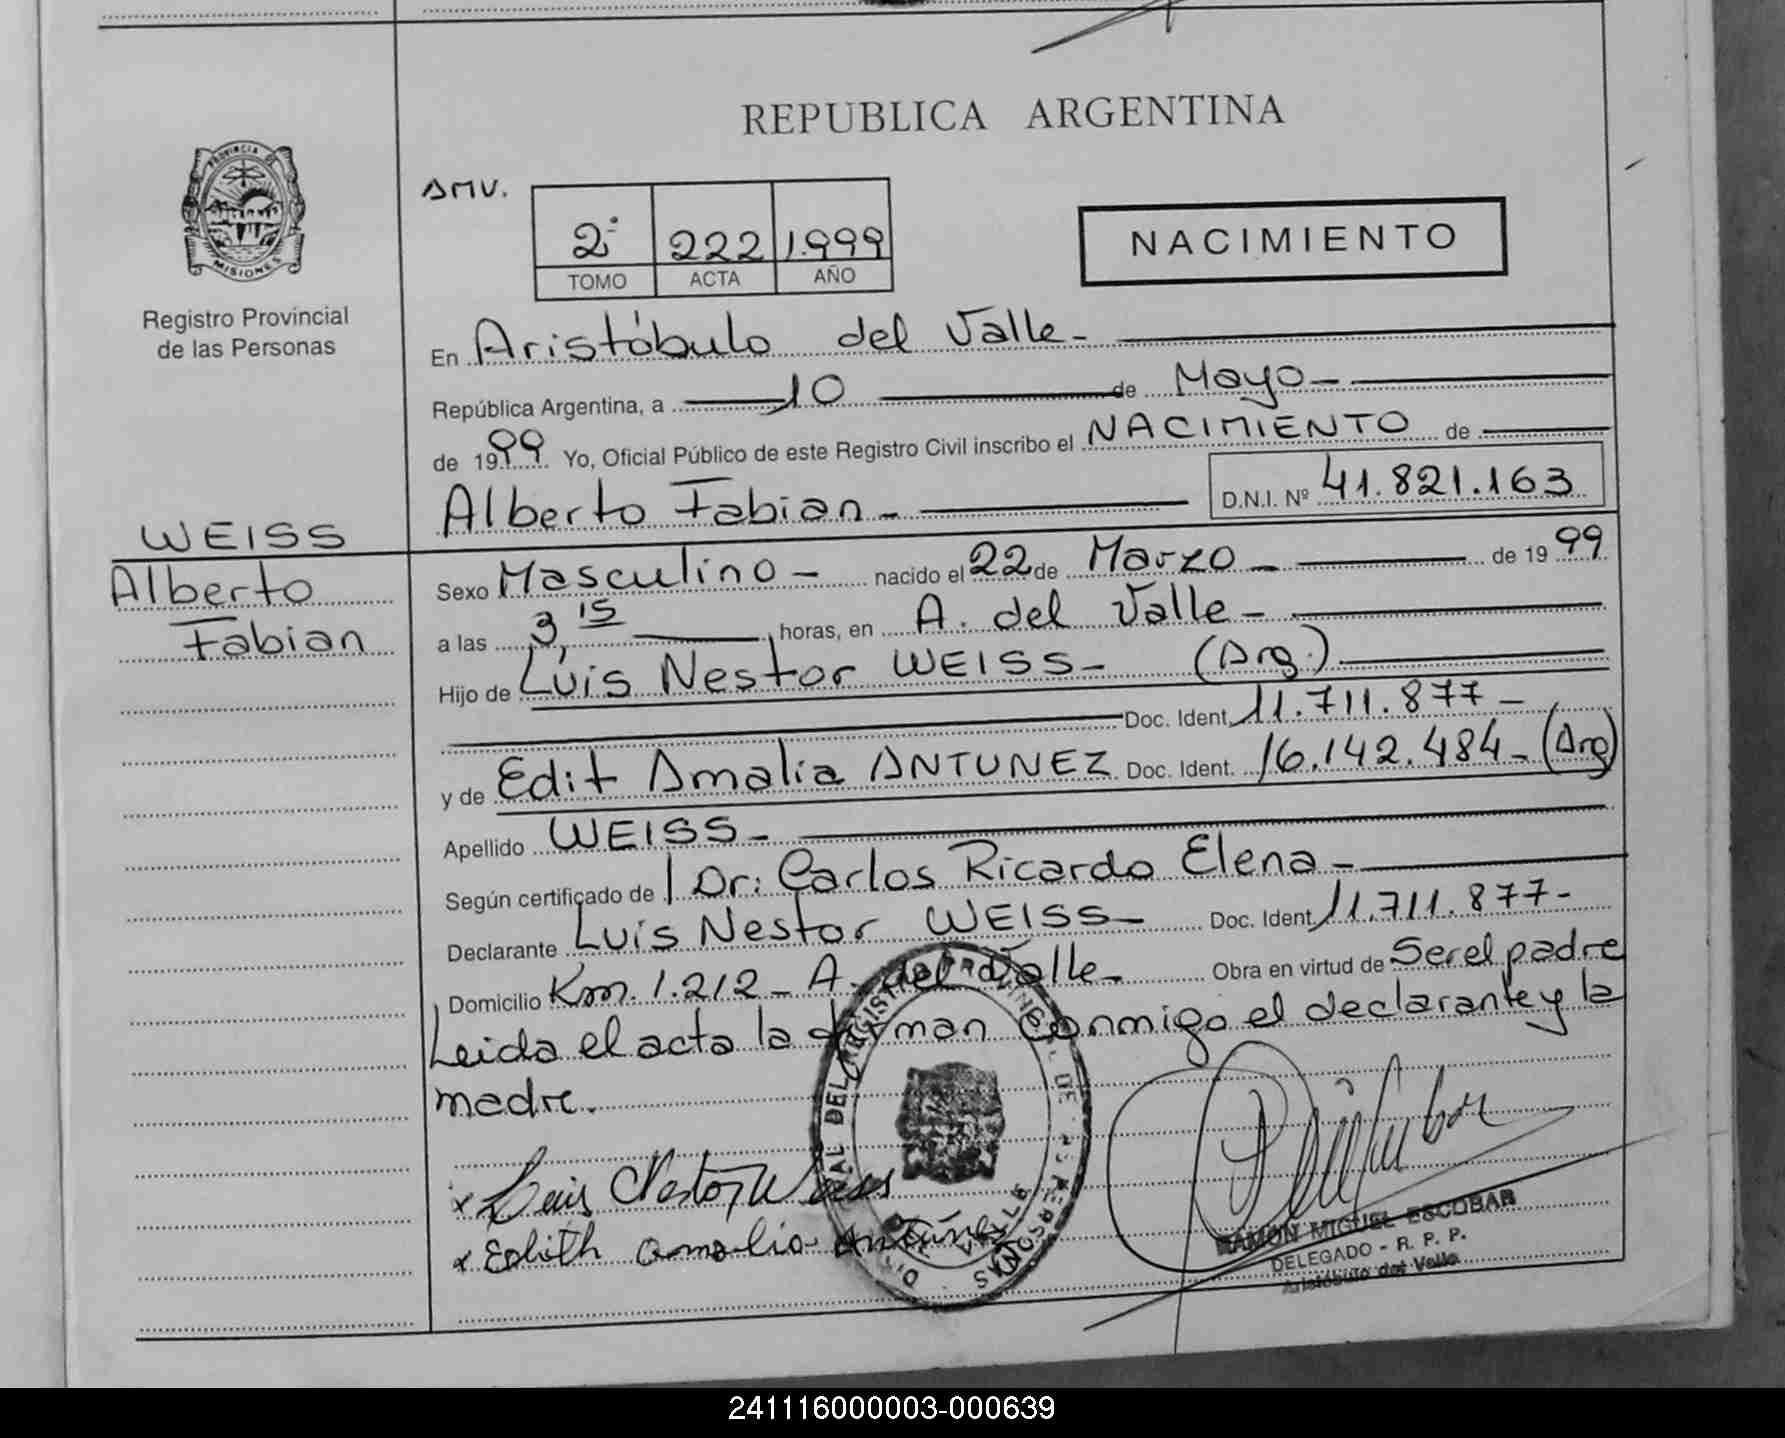 REPUBLICA ARGENTINA
PROVINCIA DE
MISIONES
Registro Provincial
de las Personas
AMV.
2º 222 1.999
TOMO ACTA AÑO
NACIMIENTO
En Aristóbulo del Valle-
República Argentina, a 10 de Mayo-
de 1999 Yo, Oficial Público de este Registro Civil inscribo el NACIMIENTO de
Alberto Fabian- D.N.I. Nº 41.821.163
WEISS
Alberto
Fabian
Sexo Masculino- nacido el 22 de Marzo- de 1999
a las 3,15 horas, en A. del Valle-
Hijo de Luis Nestor WEISS- (Arg.)
Doc. Ident. 11.711.877-
y de Edit Amalia ANTUNEZ Doc. Ident. 16.142.484- (Arg)
Apellido WEISS-
Según certificado de Dr: Carlos Ricardo Elena-
Declarante Luis Nestor WEISS- Doc. Ident. 11.711.877-
Domicilio Km. 1.212- A. del Valle- Obra en virtud de Ser el padre
Leida el acta la firman conmigo el declarante y la
madre.
x Luis Nestor Weiss
x Edith amalia Antúnez
RAMON MIGUEL ESCOBAR
DELEGADO - R. P. P.
Aristóbulo del Valle
241116000003-000639